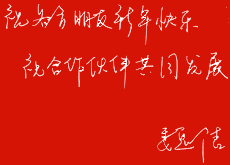 祝各方朋友新年快乐
祝合作伙伴共同发展